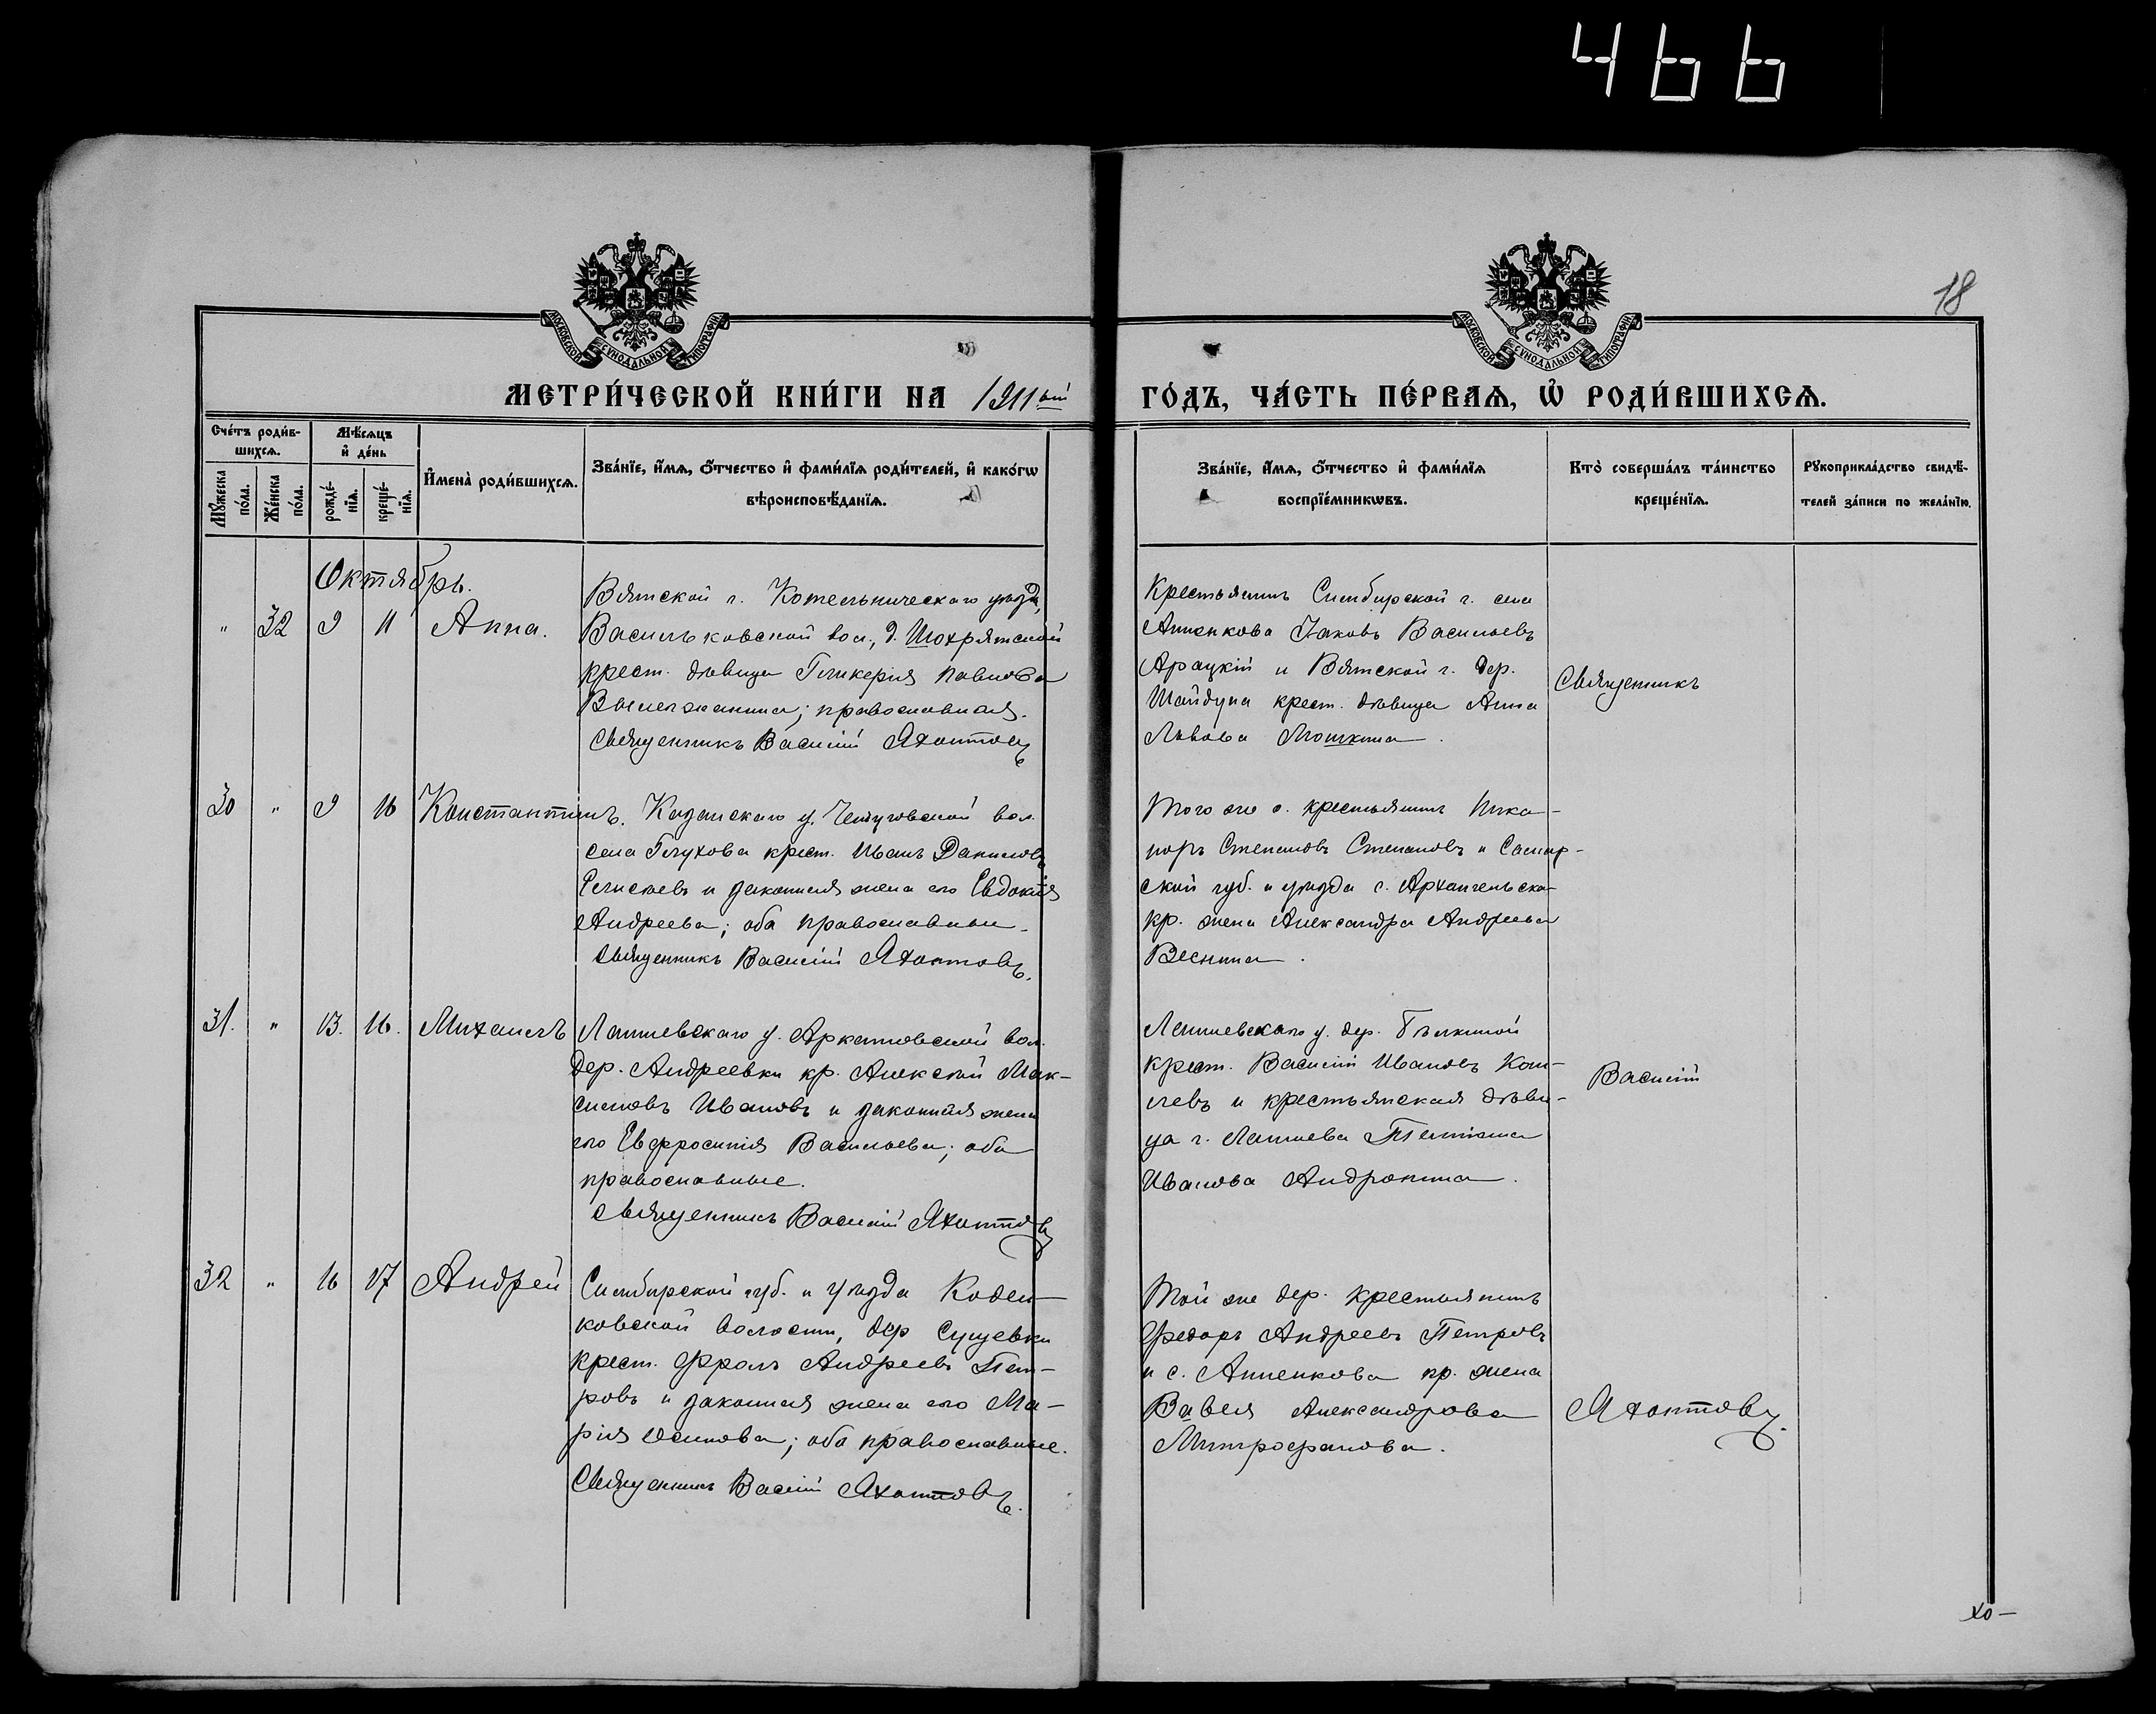 466
18
МОСКОВСКОЙ СѴНОДАЛЬНОЙ ТИПОГРАФІИ
МОСКОВСКОЙ СѴНОДАЛЬНОЙ ТИПОГРАФІИ
МЕТРИ́ЧЕСКОЙ КНИ́ГИ НА 1911ый ГО́ДЪ, ЧА́СТЬ ПЕ́РВАѦ, Ѡ҆ РОДИ́ВШИХСѦ.
Сче́тъ роди́в-
шихсѧ.
Мꙋ́жеска по́ла.
Же́нска по́ла.
Мѣ́сѧцъ
и҆ де́нь
рожде́-
нїѧ.
креще́-
нїѧ.
И҆мена̀ роди́вшихсѧ.
Зва́нїе, и҆́мѧ, ѻ҆́тчество и҆ фами́лїѧ роди́телей, и҆ како́гѡ
вѣроисповѣ́данїѧ.
Зва́нїе, и҆́мѧ, ѻ҆́тчество и҆ фами́лїѧ
воспрїе́мникѡвъ.
Кто̀ соверша́лъ та́инство
креще́нїѧ.
Рꙋкоприкла́дство свидѣ́-
телей за́писи по жела́нїю.
Октябрь.
" 32 9 11 Анна.
Вятской г. Котельническаго уѣзда,
Васильковской вол., д. Шохрятской
крест. дѣвица Гликерія Павлова
православная.
Священникъ Василій Яхонтовъ
Крестьянинъ Симбирской г. села
Анненкова Іаковъ Васильевъ
Арацкій и Вятской г. дер.
Шайдуна крест. дѣвица Анна
Львова Мошкина.
Священникъ
30 " 9 16 Константинъ.
Казанскаго у. вол.
села Глухова крест. Иванъ Даниловъ
Елисеевъ и законная жена его Евдокія
Андреева; оба православные.
Священникъ Василій Яхонтовъ.
Того же с. крестьянинъ Ника-
норъ Степановъ Степановъ и Самар-
ской губ. и уѣзда с. Архангельска
кр. жена Александра Андреева
Веснина.
31. " 13. 16. Михаилъ
Лаишевскаго у. Аркатовской вол.
дер. Андреевки кр. Алексѣй Мак-
симовъ Ивановъ и законная жена
его Евфросинія Васильева; оба
православные.
Священникъ Василій Яхонтовъ
Лаишевскаго у. дер.
крест. Василій Ивановъ Кош-
левъ и крестьянская дѣви-
ца г. Лаишева Татіана
Иванова Андронина.
Василій
32 " 16 17 Андрей
Симбирской губ. и уѣзда
ковской волости, дер Сущевки
крест. Фролъ Андреевъ Пет-
ровъ и законная жена его Ма-
рія Осипова; оба православные.
Священникъ Василій Яхонтовъ.
Той же дер. крестьянинъ
Ѳедоръ Андреевъ Петровъ
и с. Анненкова кр. жена
Александрова
Митрофанова.
Яхонтовъ.